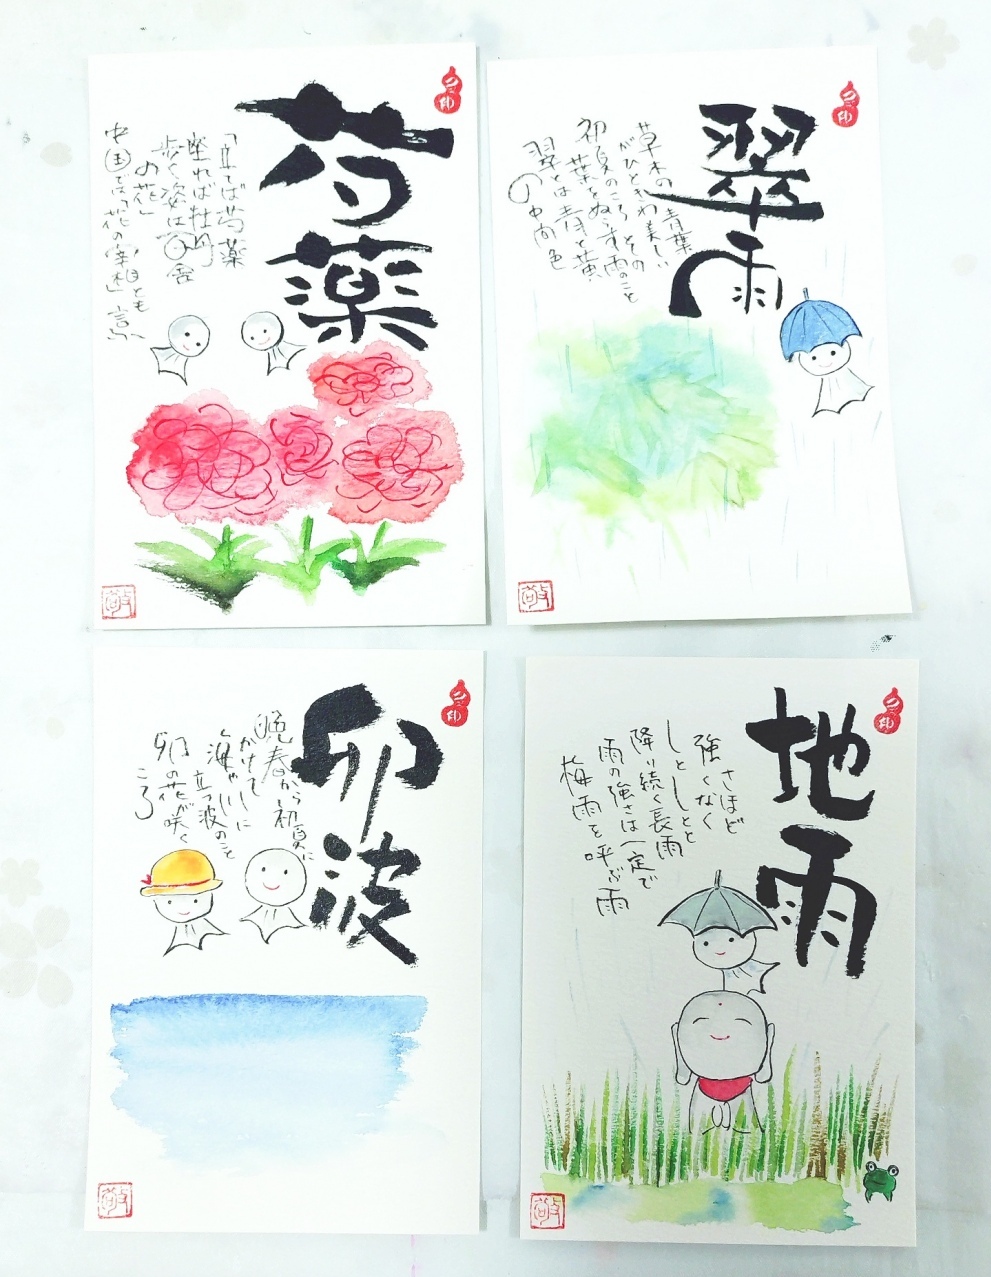 芍薬
「立てば芍薬
座れば牡丹
歩く姿は百合
の花」
中国では花の宰相とも言ふ
翠雨
草木の青葉
がひときわ美しい
初夏のころ その
葉をぬらす雨のこと
翠とは青と黄
の中間色
卯波
晩春から初夏に
かけて
海に
立つ波のこと
卯の花が咲く
ころ
地雨
さほど
強くなく
しとしとと
降り続く長雨
雨の強さは一定で
梅雨を呼ぶ雨
敬
敬
敬
敬